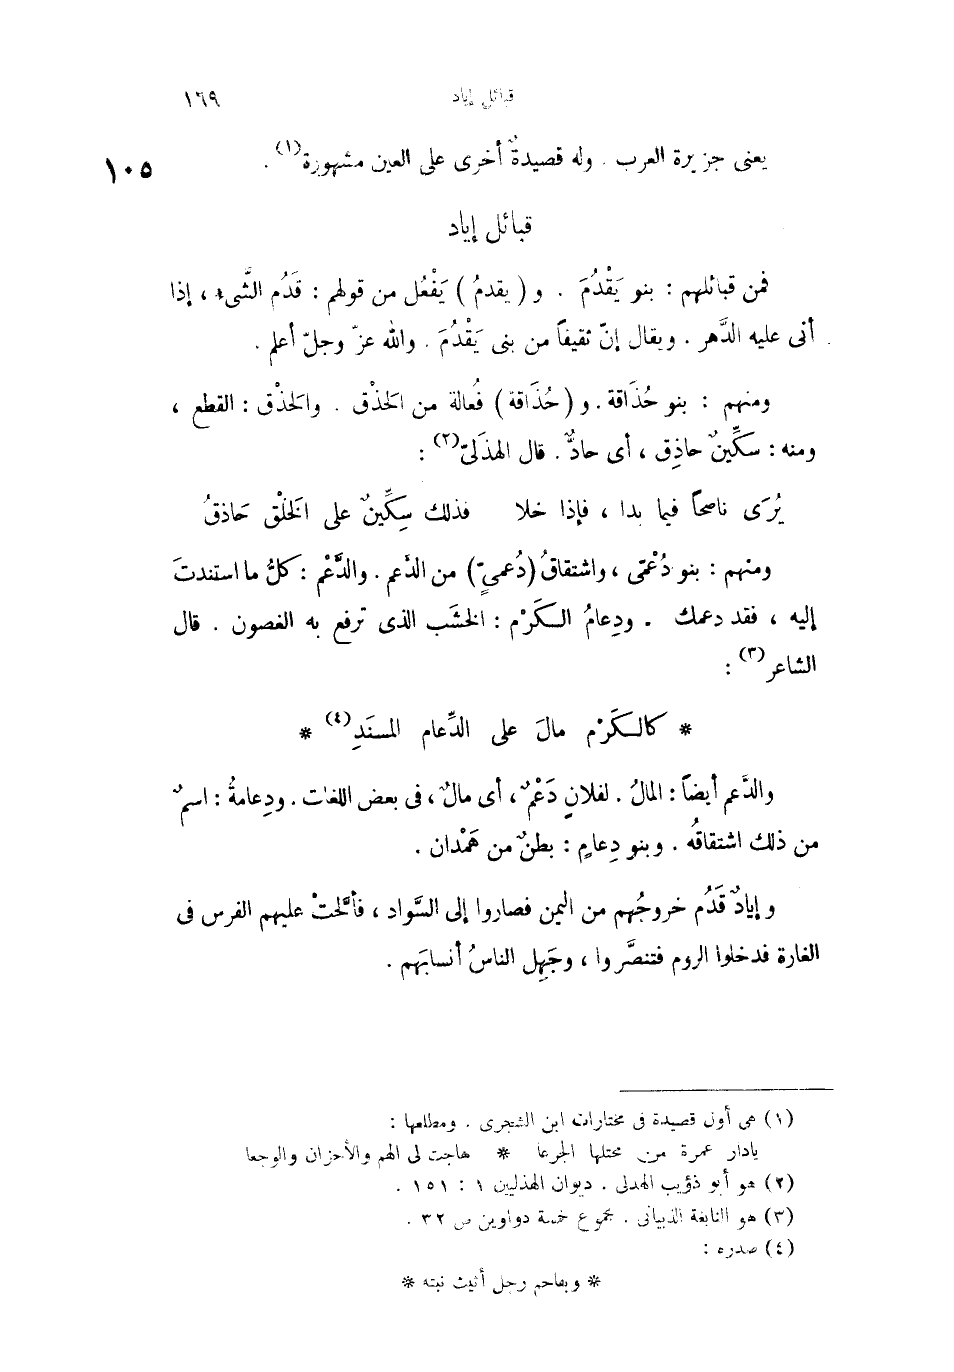 قبائل إياد ١٦٩
يعنى جزيرة العرب . وله قصيدةٌ أخرى على العين مشهورة(١) . ١٠٥
قبائل إياد
فمن قبائلهم : بنو يَقْدُمَ . و ( يقدمُ ) يَفْعُل من قولهم : قَدُم الشَّىء ، إذا
أتى عليه الدَّهر . ويقال إنّ ثقيفاً من بنى يَقْدُمَ . والله عزّ وجلّ أعلم .
ومنهم : بنو حُذَاقة . و ( حُذَاقة ) فُعالة من الحَذْق . والحَذْق : القطع ،
ومنه : سكِّينٌ حاذِق ، أى حادٌّ . قال الهذَلىّ(٢) :
يُرَى ناصحاً فيما بدا ، فإذا خلا فذلك سِكِّينٌ على الحَلْق حَاذقُ
ومنهم : بنو دُعْمِّى ، واشتقاقُ (دُعمىّ) من الدَّعم . والدَّعْم : كلُّ ما استندتَ
إليه ، فقد دعمك . ودِعامُ الكَرْم : الخشَب الذى ترفع به الغصون . قال
الشاعر(٣) :
* كالكَرْم مالَ على الدِّعام المسنَدِ(٤) *
والدَّعم أيضاً : المالُ . لفلانٍ دَعْمٌ ، أى مالٌ ، فى بعض اللغات . ودِعامةُ : اسمٌ
من ذلك اشتقاقُه . وبنو دِعامٍ : بطنٌ من هَمْدان .
وإيادٌ قَدُم خروجُهم من اليمن فصاروا إلى السَّواد ، فألحّتْ عليهم الفرس فى
الغارة فدخلوا الروم فتنصَّروا ، وجَهِل الناسُ أنسابَهم .
(١) هى أول قصيدة فى مختارات ابن الشجرى . ومطلعها :
يادار عمرة من محتلها الجرعا * هاجت لى الهم والأحزان والوجعا
(٢) هو أبو ذؤيب الهذلى . ديوان الهذليين ١ : ١٥١ .
(٣) هو النابغة الذبيانى . مجموع خمسة دواوين ص ٣٢ .
(٤) صدره :
* وبفاحم رجل أثيث نبته *